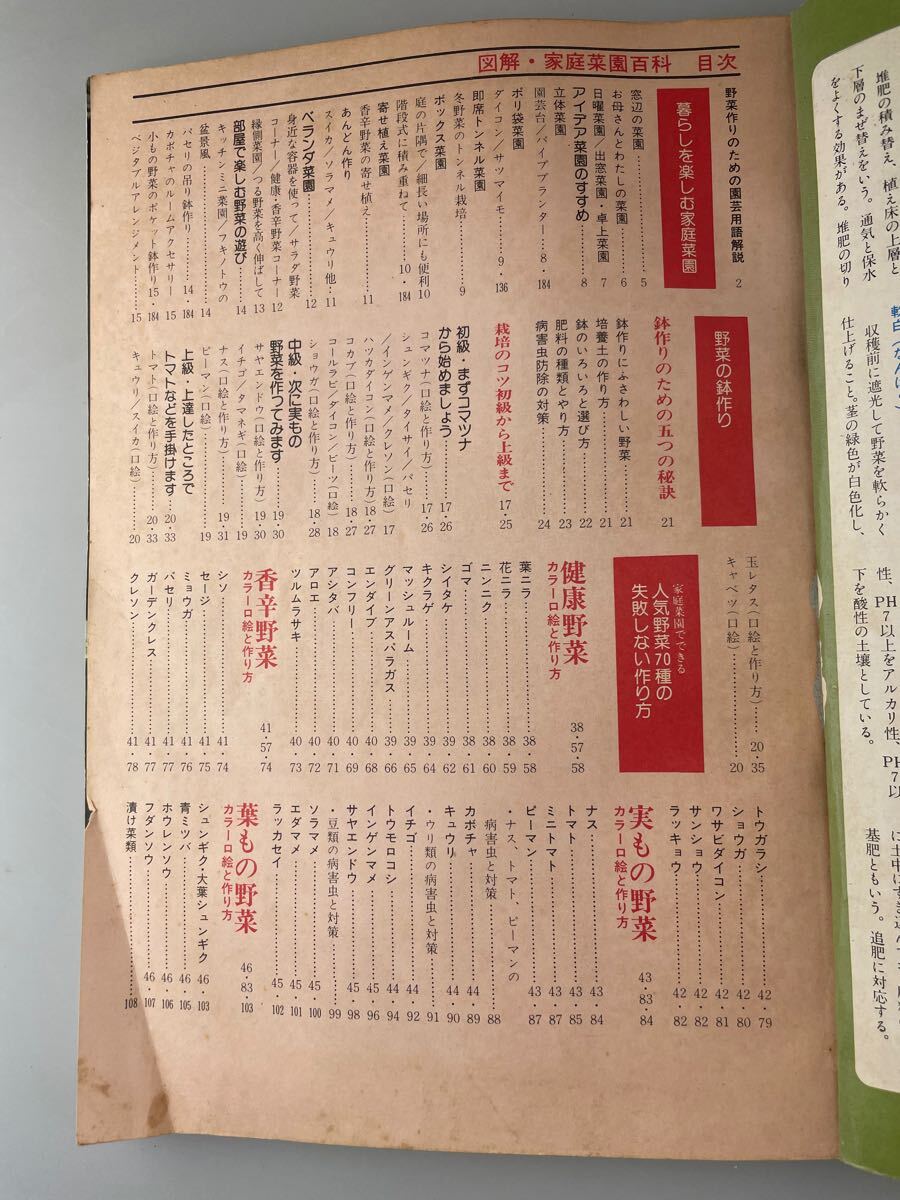 図解・家庭菜園百科 目次
野菜作りのための園芸用語解説……2
暮らしを楽しむ家庭菜園
窓辺の菜園……5
お母さんとわたしの菜園……6
日曜菜園/出窓菜園・卓上菜園……7
アイデア菜園のすすめ……8
立体菜園
園芸台/パイププランター……8・184
ポリ袋菜園
ダイコン/サツマイモ……9・136
即席トンネル菜園
冬野菜のトンネル栽培……9
ボックス菜園
庭の片隅で/細長い場所にも便利 10
階段式に積み重ねて……10・184
寄せ植え菜園
香辛野菜の寄せ植え……11
あんどん作り
スイカ/ソラマメ/キュウリ他……11
ベランダ菜園……12
身近な容器を使って/サラダ野菜
コーナー/健康・香辛野菜コーナー 12
縁側菜園/つる野菜を高く伸ばして 13
部屋で楽しむ野菜の遊び……14
キッチンミニ菜園/フキノトウの
盆景風……14
パセリの吊り鉢作り……14・184
カボチャのルームアクセサリー 15
小もの野菜のポケット鉢作り 15 184
ベジタブルアレンジメント……15
野菜の鉢作り
鉢作りのための五つの秘訣……21
鉢作りにふさわしい野菜……21
培養土の作り方……21
鉢のいろいろと選び方……22
肥料の種類とやり方……23
病害虫防除の対策……24
栽培のコツ初級から上級まで……17・25
初級・まずコマツナ
から始めましょう……17・26
コマツナ(口絵と作り方)……17・26
シュンギク/タイサイ/パセリ
/インゲンマメ/クレソン(口絵) 17
ハツカダイコン(口絵と作り方) 18・27
コカブ(口絵と作り方)……18・27
コールラビ/ダイコン/ビーツ(口絵) 18
ショウガ(口絵と作り方)……18・28
中級・次に実もの
野菜を作ってみます……19・30
サヤエンドウ(口絵と作り方)……19・30
イチゴ/タマネギ(口絵)……19
ナス(口絵と作り方)……19・31
ピーマン(口絵)……19
上級・上達したところで
トマトなどを手掛けます……20・33
トマト(口絵と作り方)……20・33
キュウリ/スイカ(口絵)……20
玉レタス(口絵と作り方)……20・35
キャベツ(口絵)……20
家庭菜園でできる
人気野菜70種の
失敗しない作り方
健康野菜
カラー口絵と作り方……38・57・58
葉ニラ……38・58
花ニラ……38・59
ニンニク……38・60
ゴマ……38・61
シイタケ……39・62
キクラゲ……39・64
マッシュルーム……39・65
グリーンアスパラガス……39・66
エンダイブ……40・68
コンフリー……40・69
アシタバ……40・71
アロエ……40・72
ツルムラサキ……40・73
香辛野菜
カラー口絵と作り方……41・57・74
シソ……41・74
セージ……41・75
ミョウガ……41・76
パセリ……41・77
ガーデンクレス……41・77
クレソン……41・78
トウガラシ……42・79
ショウガ……42・80
ワサビダイコン……42・81
サンショウ……42・82
ラッキョウ……42・82
実もの野菜
カラー口絵と作り方……43・83・84
ナス……43・84
トマト……43・85
ミニトマト……43・87
ピーマン……43・87
・ナス、トマト、ピーマンの
病害虫と対策……88
カボチャ……44・89
キュウリ……44・90
・ウリ類の病害虫と対策……91
イチゴ……44・92
トウモロコシ……44・94
インゲンマメ……45・96
サヤエンドウ……45・98
・豆類の病害虫と対策……99
ソラマメ……45・100
エダマメ……45・101
ラッカセイ……45・102
葉もの野菜
カラー口絵と作り方……46・83・103
シュンギク・大葉シュンギク 46・103
青ミツバ……46・105
ホウレンソウ……46・106
フダンソウ……46・107
漬け菜類……108
堆肥の積み替え、植え床の上層と
下層のまぜ替えをいう。通気と保水
をよくする効果がある。堆肥の切り
収穫前に遮光して野菜を軟らかく
仕上げること。茎の緑色が白色化し、
性、PH7以上をアルカリ性、PH7以
下を酸性の土壌としている。
基肥ともいう。追肥に対応する。